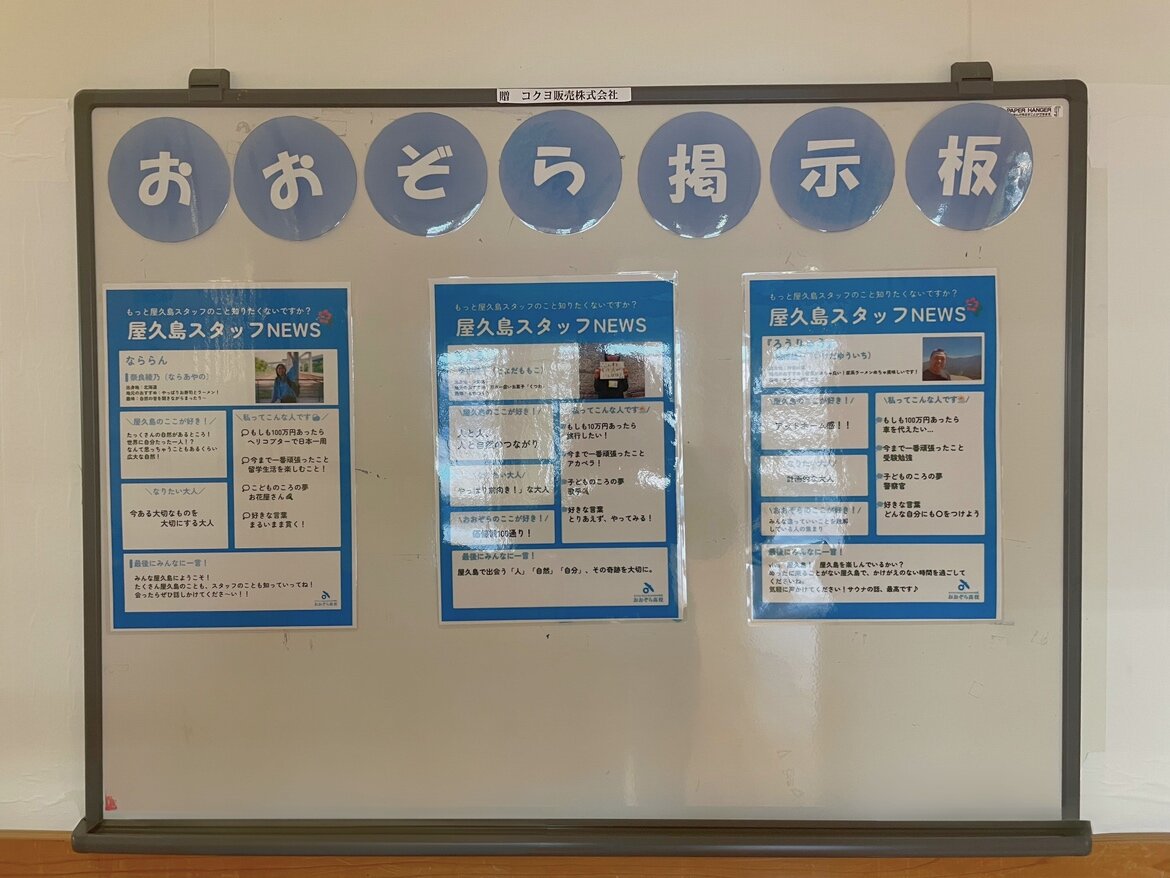 贈 コクヨ販売株式会社
PAPER HANGER
おおぞら掲示板
もっと屋久島スタッフのこと知りたくないですか？
屋久島スタッフNEWS
なららん
奈良綾乃（ならあやの）
出身地：北海道
地元のおすすめ：やっぱりお寿司とラーメン！
趣味：自然の音を聞きながらまったり〜
＼屋久島のここが好き！／
たっくさんの自然があるところ！
世界に自分たった一人！？
なんて思っちゃうこともあるくらい
広大な自然！
＼なりたい大人／
今ある大切なものを
大切にする大人
＼私ってこんな人です／
もしも100万円あったら
ヘリコプターで日本一周
今まで一番頑張ったこと
留学生活を楽しむこと！
こどものころの夢
お花屋さん
好きな言葉
まるいまま貫く！
最後にみんなに一言！
みんな屋久島にようこそ！
たくさん屋久島のことも、スタッフのことも知っていってね！
会ったらぜひ話しかけてくださ〜い！！
おおぞら高校
もっと屋久島スタッフのこと知りたくないですか？
屋久島スタッフNEWS
＼屋久島のここが好き！／
人と人、
人と自然のつながり
やっぱり前向き！」な大人
＼おおぞらのここが好き！／
価値観100通り！
私ってこんな人です
もしも10万円あったら
旅行したい！
今まで一番頑張ったこと
アカペラ！
子どものころの夢
歌手
好きな言葉
とりあえず、やってみる！
最後にみんなに一言！
屋久島で出会う「人」「自然」「自分」、その奇跡を大切に。
おおぞら高校
もっと屋久島スタッフのこと知りたくないですか？
屋久島スタッフNEWS
＼屋久島のここが好き！／
アットホーム感！！
＼なりたい大人／
計画的な大人
＼おおぞらのここが好き！／
みんな違っていいことを理解
している人の集まり
＼私ってこんな人です／
もしも100万円あったら
車を代えたい…
今まで一番頑張ったこと
受験勉強
子どものころの夢
警察官
好きな言葉
どんな自分にも〇をつけよう
最後にみんなに一言！
屋久島を楽しんでいるかい？
めったに来ることがない屋久島で、かけがえのない時間を過ごして
くださいね。
気軽に声かけてください！サウナの話、最高です♪
おおぞら高校